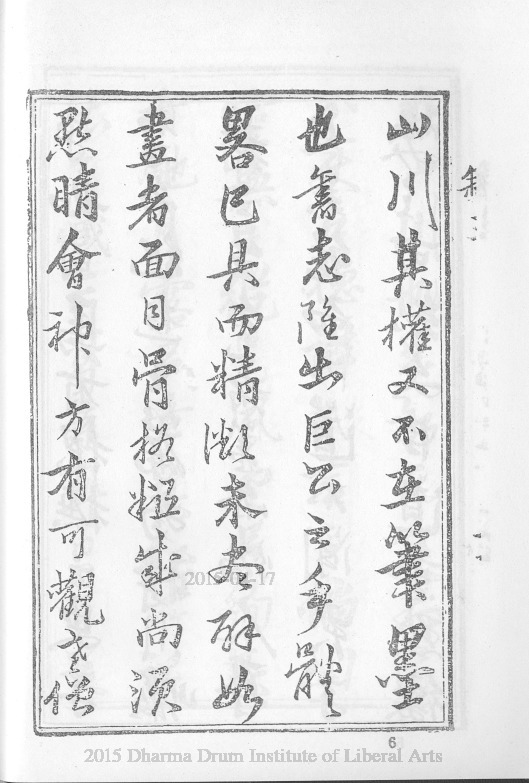 山川其權又不在筆墨
也舊志雖出巨公之手體
畧已具而精微未如
畫者面目骨格粗成尚須
點睛會神方有可觀老僧
6
2015-04-17
2015 Dharma Drum Institute of Liberal Arts